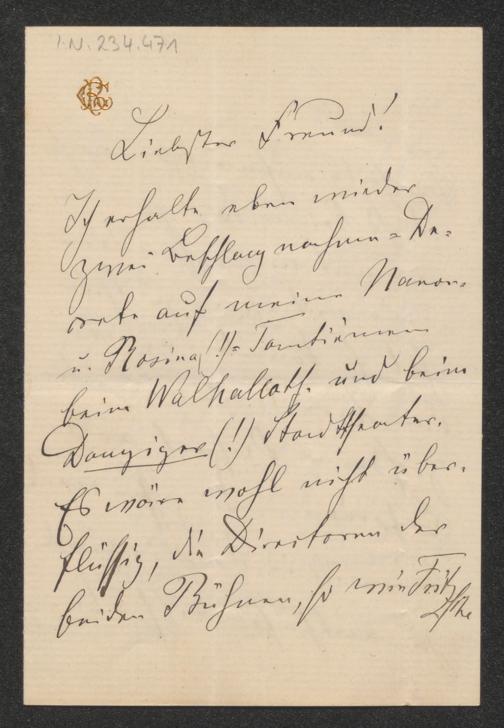 I.N. 234.471
Liebster Freund!
Ich erhalte eben wieder
zwei Beschlagnahme-De-
crete auf meine Nanon-
u. Rosina(!)-Tantièmen
beim Walhallath. und beim
Danziger(!) Stadttheater.
Es wäre wohl nicht über-
flüssig, die Directoren der
beiden Bühnen, so wie Fritz